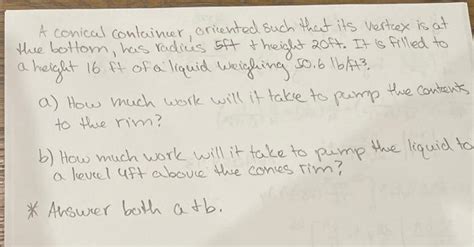 A conical container, oriented such that its vertex is at
the bottom, has radius 5ft + height 20ft. It is filled to
a height 16 ft of a liquid weighing 50.6 lb/ft³.
a) How much work will it take to pump the contents
to the rim?
b) How much work will it take to pump the liquid to
a level 4ft above the cones rim?
* Answer both a + b.